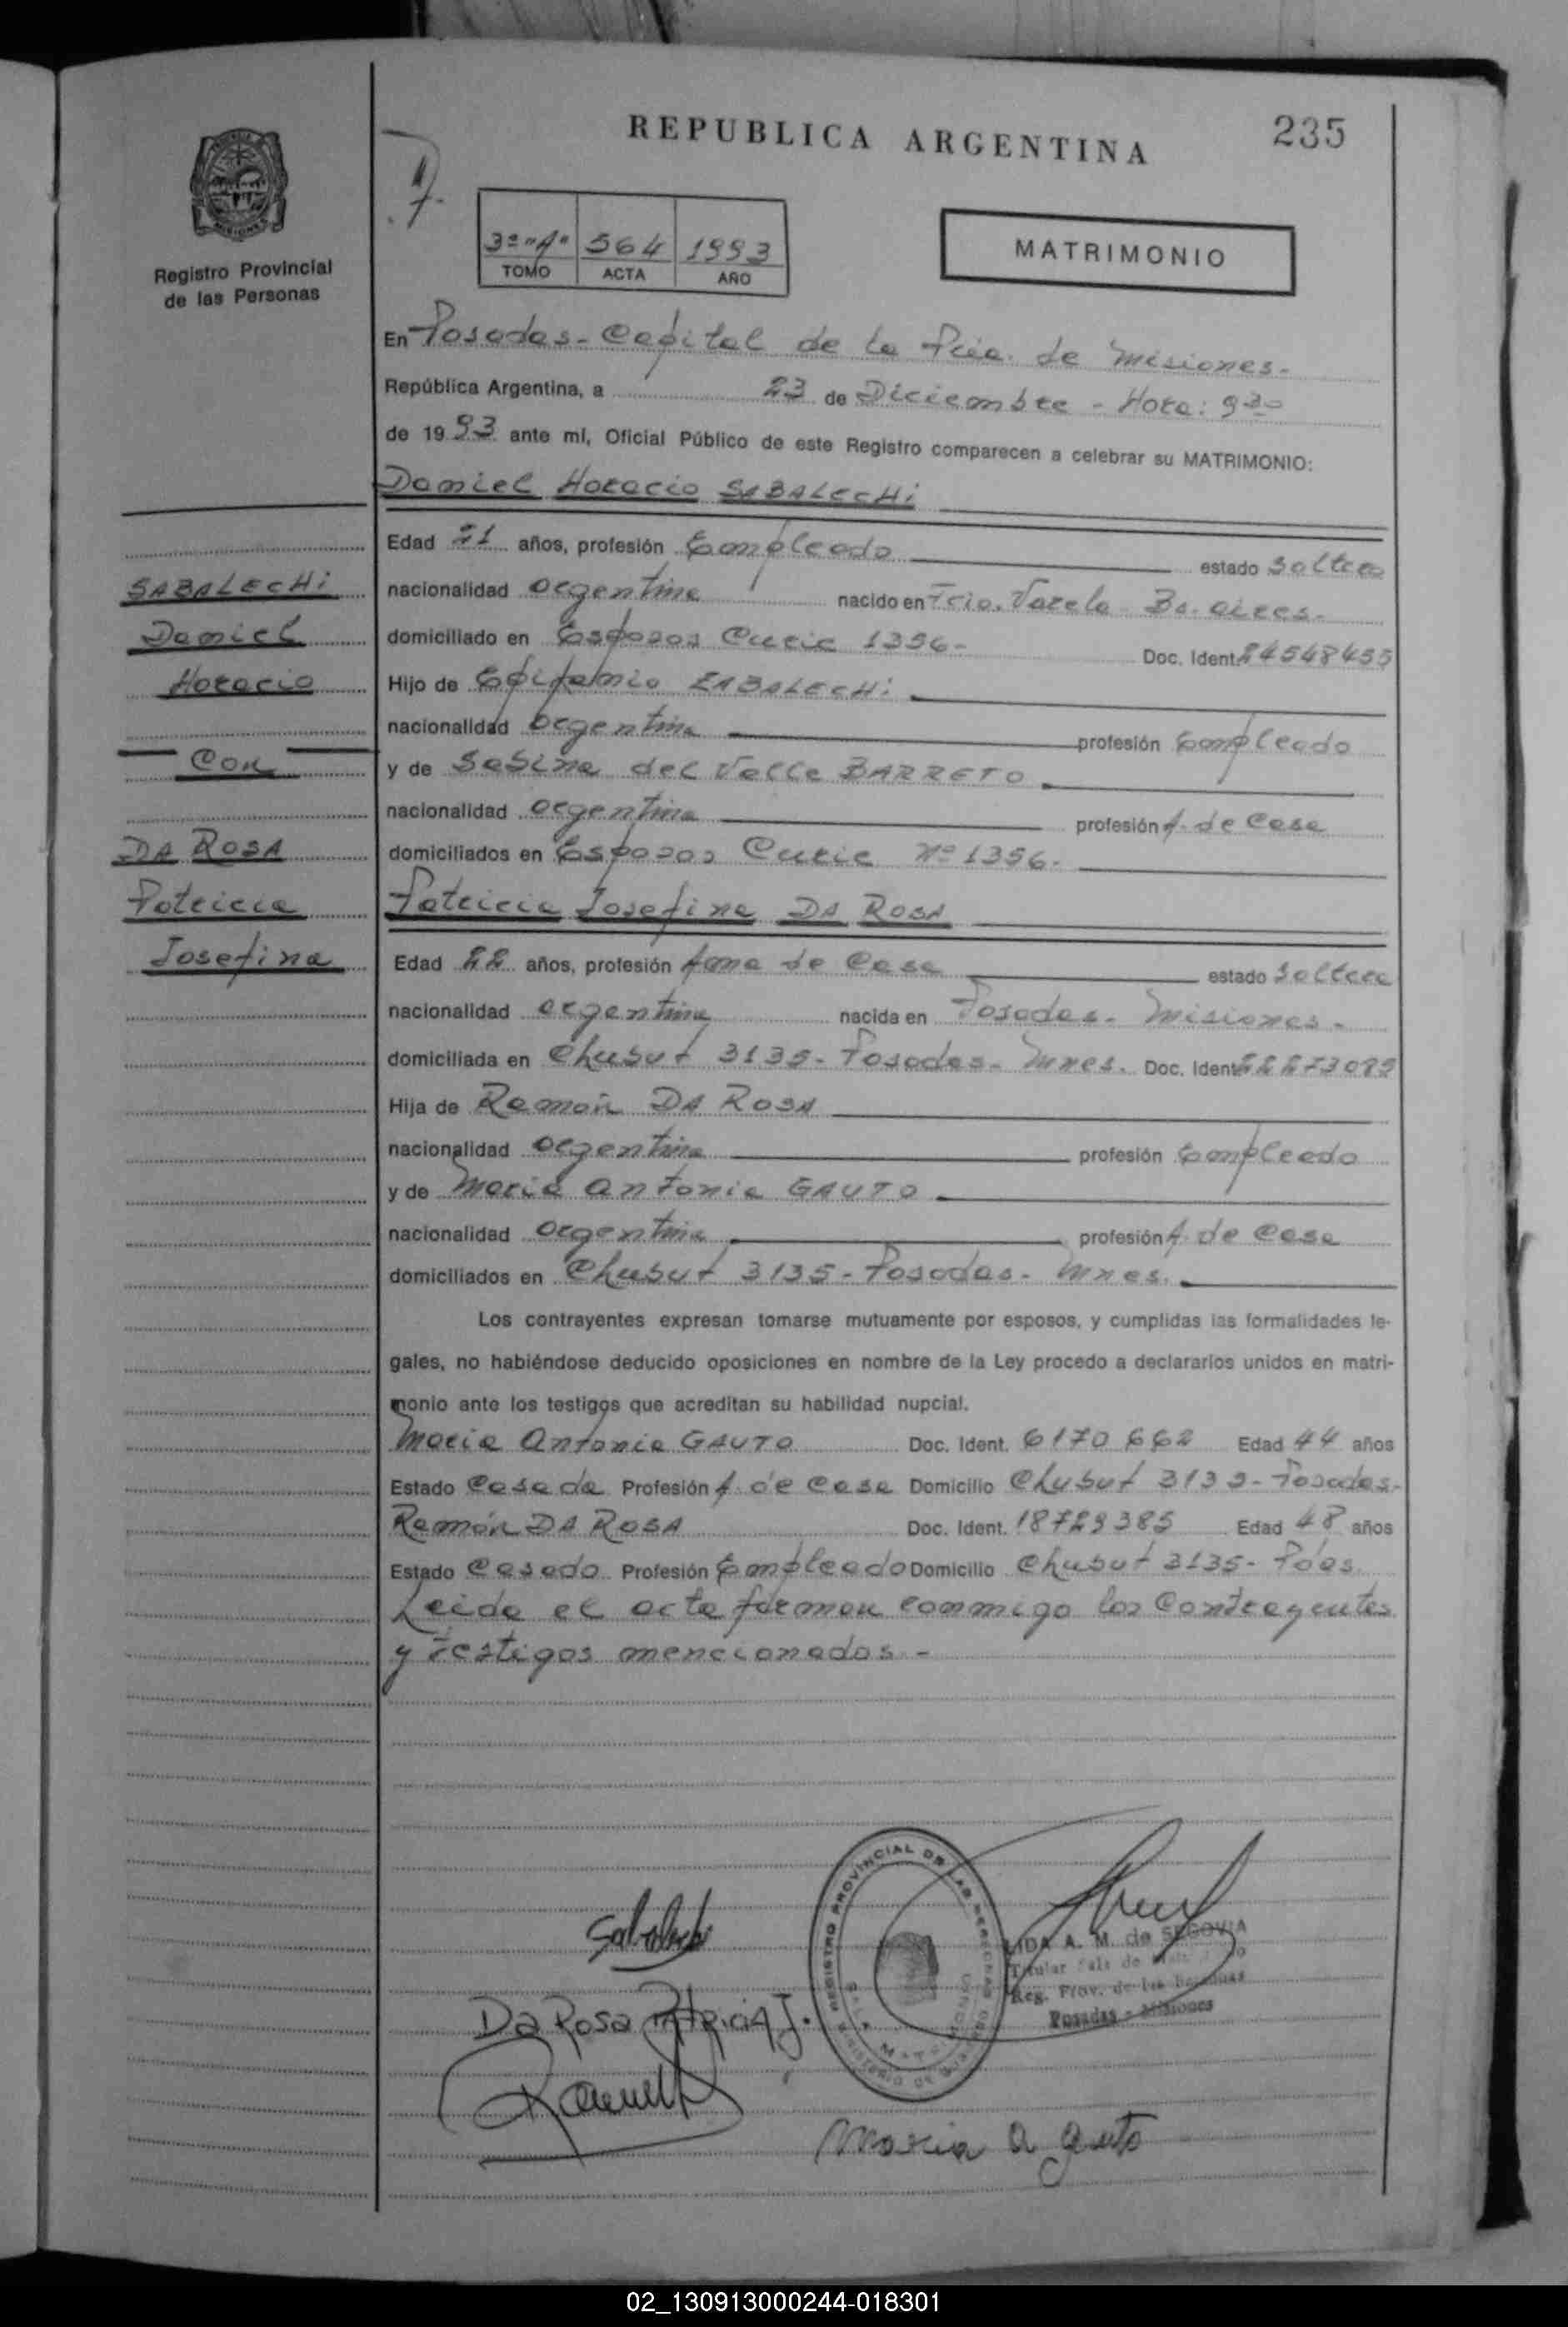 REPUBLICA ARGENTINA
235
Registro Provincial
de las Personas
3º "A" 564 1993
TOMO ACTA AÑO
MATRIMONIO
En Posadas - Capital de la Pcia. de Misiones.-
República Argentina, a 23 de Diciembre - Hora: 9 30
de 1993 ante mí, Oficial Público de este Registro comparecen a celebrar su MATRIMONIO:
Daniel Horacio SABALECHI
Edad 21 años, profesión Empleado estado soltero
nacionalidad argentina nacido en Fcio. Varela Bs. aires.-
domiciliado en Esposos Curie 1356- Doc. Ident. 24548455
Hijo de Epifanio ZABALECHI
nacionalidad argentina profesión Empleado
y de Sabina del Valle BARRETO
nacionalidad argentina profesión A. de Casa
domiciliados en Esposos Curie Nº 1356.
Patricia Josefina DA ROSA
Edad 22 años, profesión Ama de Casa estado soltera
nacionalidad argentina nacida en Posadas- Misiones.-
domiciliada en Chubut 3135- Posadas- Mnes. Doc. Ident. 22273089
Hija de Ramón DA ROSA
nacionalidad argentina profesión Empleado
y de María Antonia GAUTO
nacionalidad argentina profesión A. de Casa
domiciliados en Chubut 3135- Posadas- Mnes.
Los contrayentes expresan tomarse mutuamente por esposos, y cumplidas las formalidades le-
gales, no habiéndose deducido oposiciones en nombre de la Ley procedo a declararlos unidos en matri-
monio ante los testigos que acreditan su habilidad nupcial.
María Antonia GAUTO Doc. Ident. 6170662 Edad 44 años
Estado Casada Profesión A. de Casa Domicilio Chubut 3135- Posadas-
Ramón DA ROSA Doc. Ident. 18729385 Edad 48 años
Estado Casado Profesión Empleado Domicilio Chubut 3135- Pdas.
Leida el acta firman conmigo los Contrayentes
y testigos mencionados.-
SABALECHI
Daniel
Horacio
Con
DA ROSA
Patricia
Josefina
REGISTRO PROVINCIAL DE LAS PERSONAS
LIDA A. M. de SEGOVIA
Titular Sala de
Reg. Prov. de las Personas
Posadas - Misiones
Da Rosa Patricia J.
Maria A Gauto
02_130913000244-018301